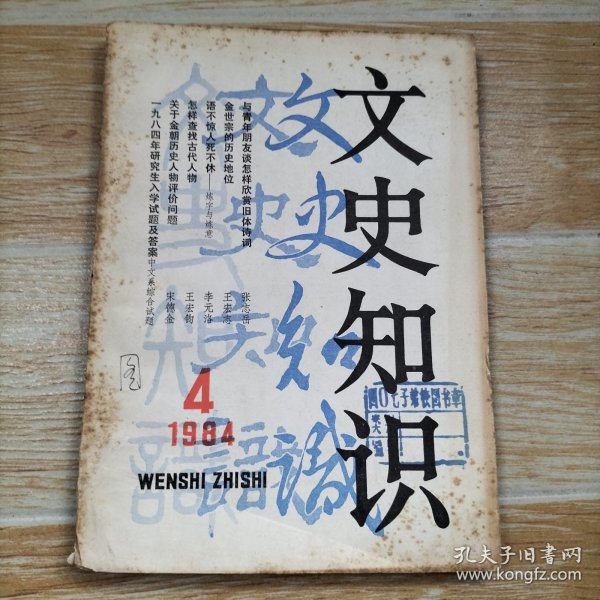 文史知识
与青年朋友谈怎样欣赏旧体诗词 张志岳
金世宗的历史地位 王宏志
语不惊人死不休——炼字与炼意 李元洛
怎样查找古代人物 王宏钧
关于金朝历史人物评价问题 宋德金
一九八四年研究生入学试题及答案 中文系综合试题
4
1984
WENSHI ZHISHI
孔夫子旧书网
www.kongfz.com